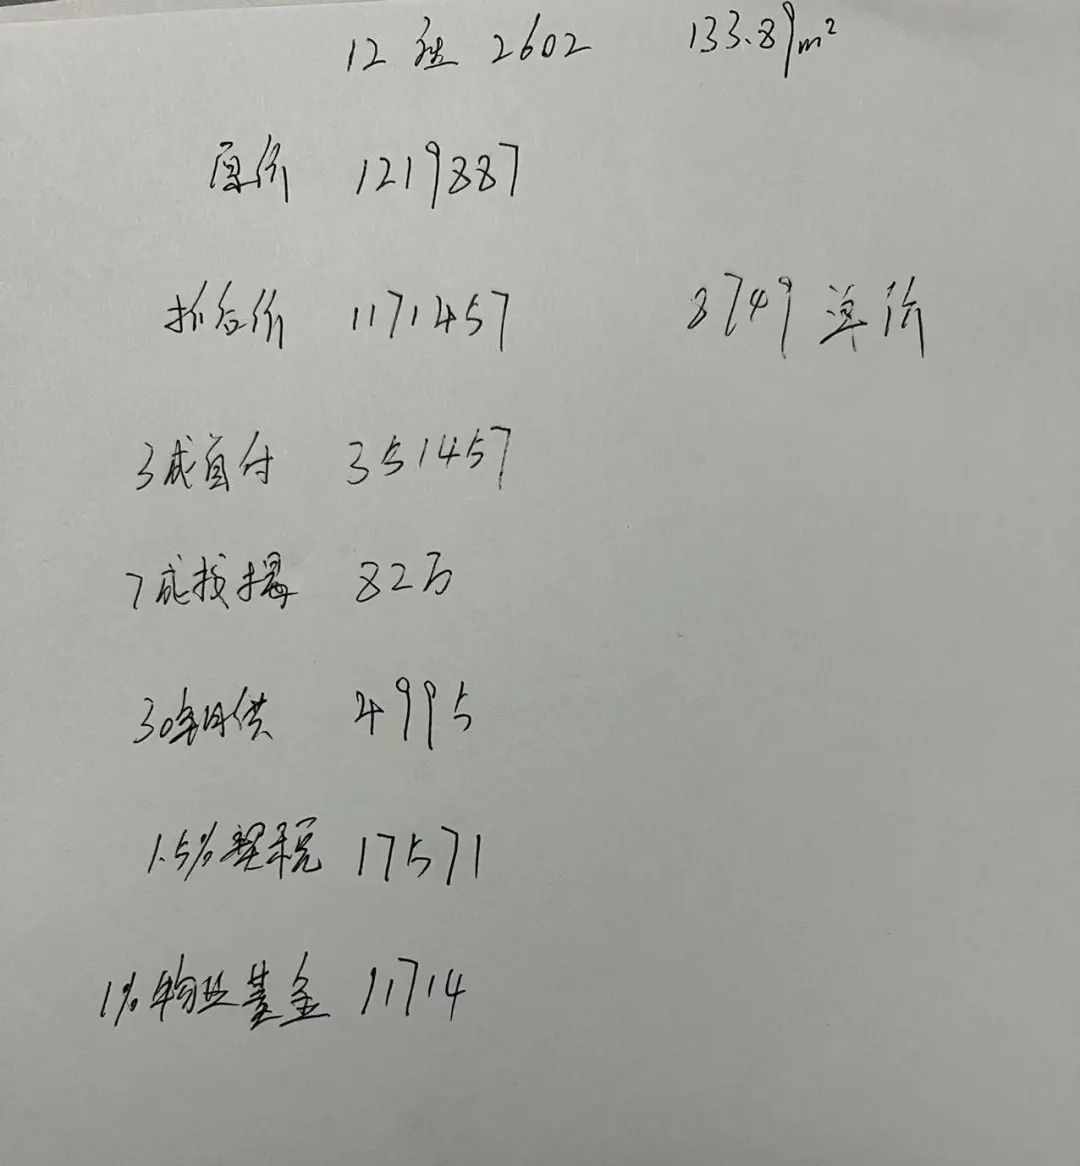 12栋 2602 133.89m²
原价 1219887
折后价 1171457 8749单价
3成首付 351457
7成按揭 82万
30年月供 4995
1.5%契税 17571
1%物业基金 11714